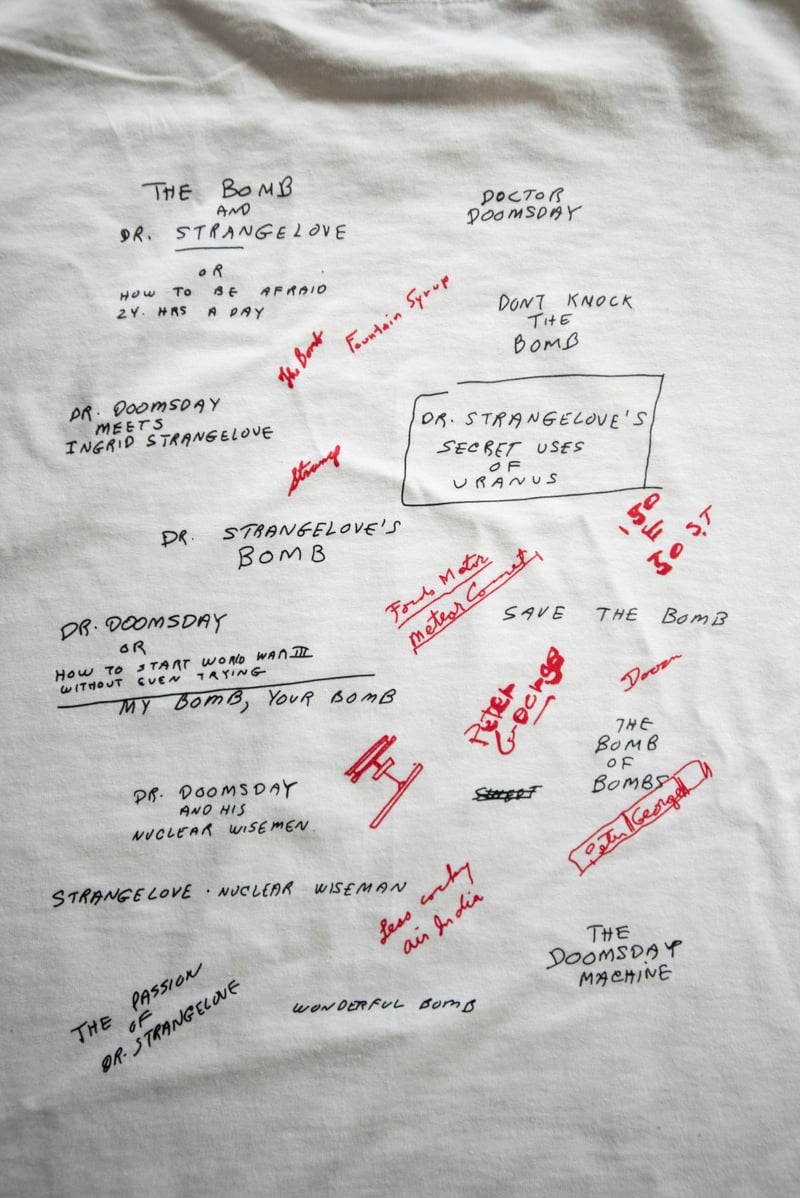 THE BOMB
AND
DR. STRANGELOVE
OR
HOW TO BE AFRAID
24. HRS A DAY
DOCTOR
DOOMSDAY
Fountain Syrup
The Bomb
DONT KNOCK
THE
BOMB
DR. DOOMSDAY
MEETS
INGRID STRANGELOVE
DR. STRANGELOVE'S
SECRET USES
OF
URANUS
Strange
DR. STRANGELOVE'S
BOMB
150
E
50 S.T
Meteor Comet
SAVE THE BOMB
DR. DOOMSDAY
OR
HOW TO START WORLD WAR III
WITHOUT EVEN TRYING
MY BOMB, YOUR BOMB
PETER
GEORGE
THE
BOMB
OF
BOMBS
DR. DOOMSDAY
AND HIS
NUCLEAR WISEMEN.
Peter George
STRANGELOVE · NUCLEAR WISEMAN
Less
air India
THE
DOOMSDAY
MACHINE
THE PASSION
OF
DR. STRANGELOVE
WONDERFUL BOMB